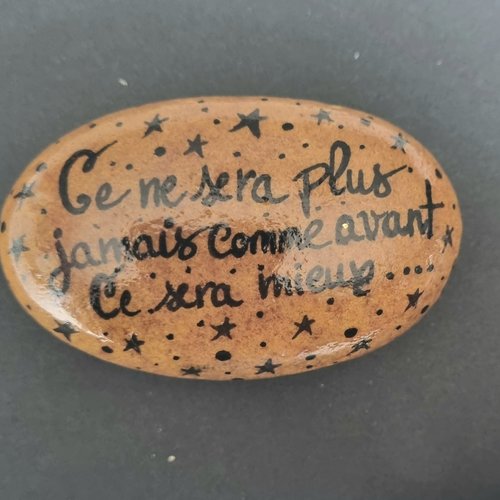 Ce ne sera plus
jamais comme avant
Ce sera mieux....